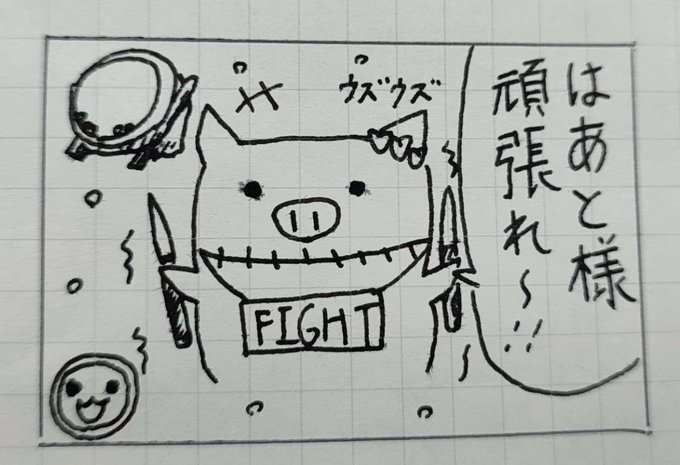 はあと様
頑張れ〜!!
ウズウズ
FIGHT